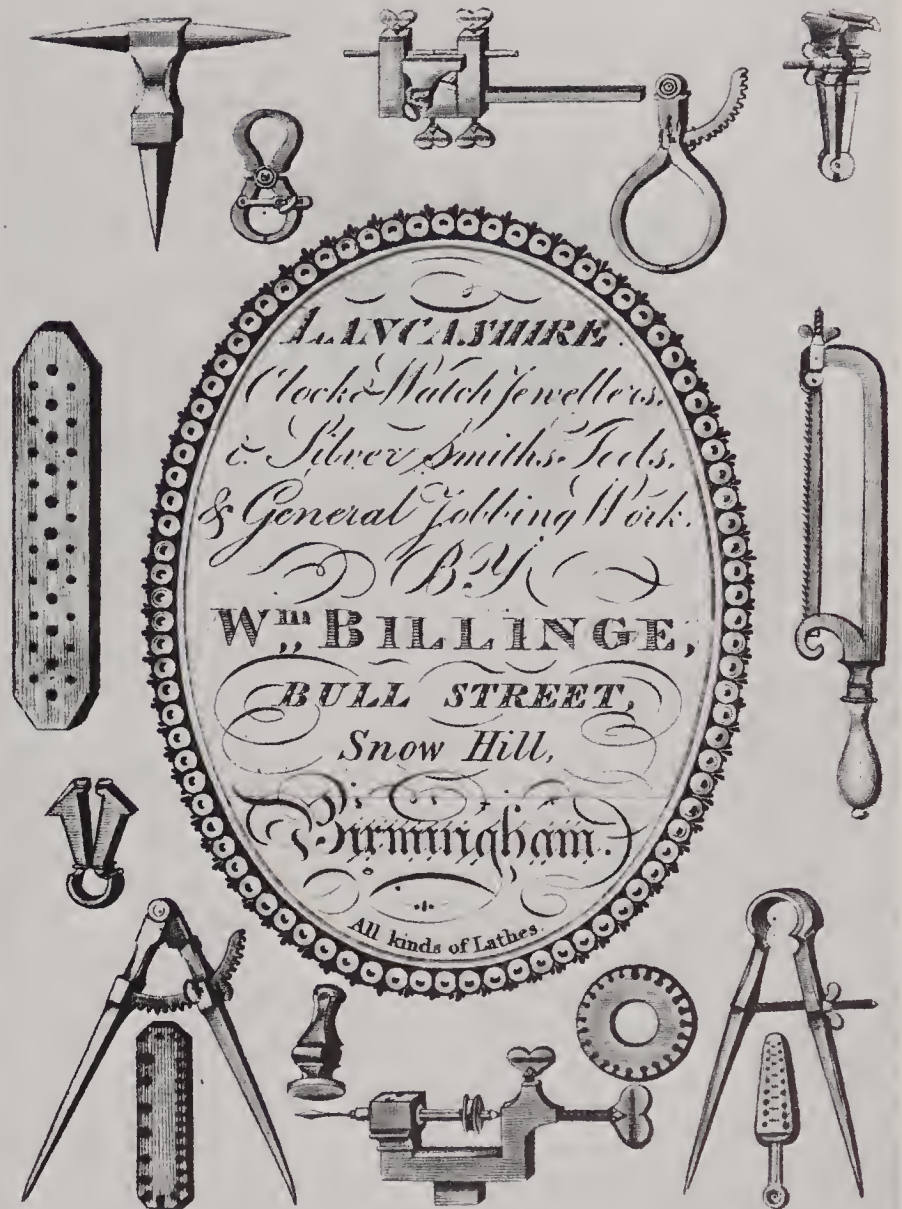 LANCASHIRE.
Clock & Watch Jewellers,
& Silver Smiths Tools,
& General Jobbing Work.
BY
Wm BILLINGE,
BULL STREET,
Snow Hill,
Birmingham.
All kinds of Lathes.